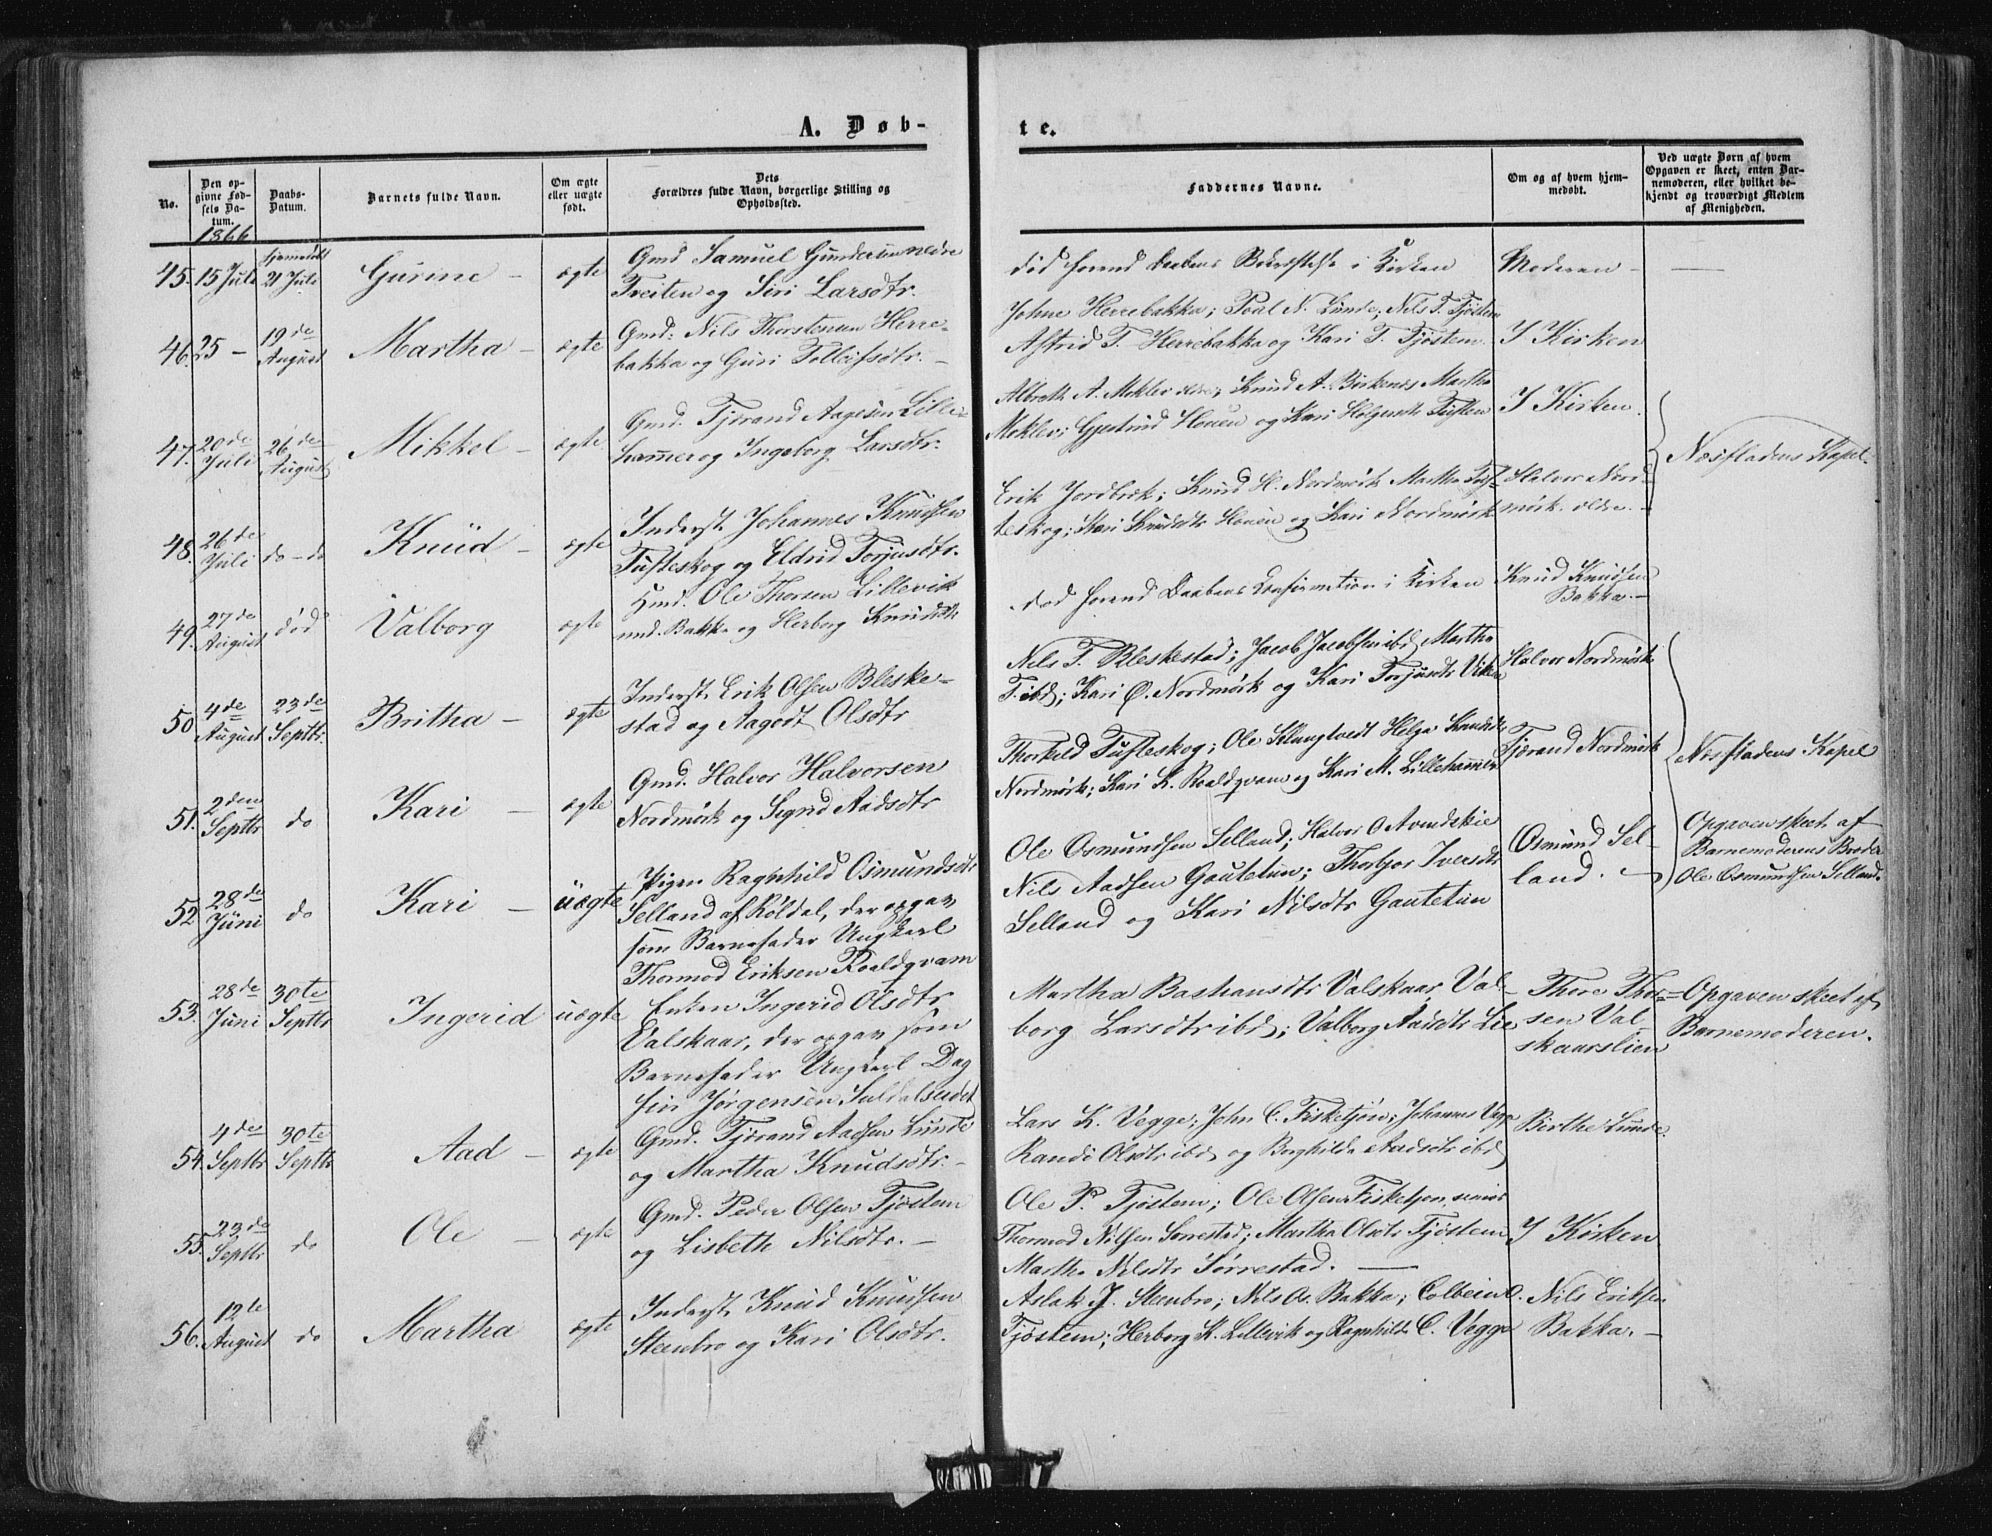 A. Døb-
te.
No.
Den op-
givne Fød-
sels Da-
tum.
1866
Daabs-
Datum.
Barnets fulde Navn.
Om ægte
eller uægte
født.
Dets
Forældres fulde Navn, borgerlige Stilling og
Opholdssted.
Faddernes Navne.
Om og af hvem hjem-
medøbt.
Ved uægte Børn af hvem
Opgaven er skeet, enten Bar-
nemoderen, eller hvilket be-
kjendt og troværdigt Medlem
af Menigheden.
45. 15 Juli
hjemmedøbt
21 Juli
Gurine -
ægte
Gmd Samuel Gundersen nedre
Tveiten og Siri Larsdtr.
død forend Daabens Bekræftelse i Kirken
Moderen -
46. 25 -
19de
August
Martha -
ægte
Gmd: Nils Thorstensen Herre-
bakka og Guri Tolleifsdtr. -
Johne Herrebakka; Poal N. Lunde; Nils T. Tjøstem
Astrid T. Herrebakka og Kari T. Tjøstem.
I Kirken
47. 20de
Juli
26de
August
Mikkel -
ægte
Gmd. Tjerand Aagesen Lille-
hammer og Ingeborg Larsdtr.
Albreth A. Moklev Knud A. Birkenes Martha
Moklev; Gjertrud Houen og Kari Holgersdtr Tuften
I Kirken.
Næsfladens Kapel.
48. 26de
Juli
do - do
Knud -
ægte
Inderst Johannes Knudsen
Tufteskog og Eldrid Torjusdtr.
Erik Jordbrek; Knud H. Nordmørk Martha Tuf-
teskog; Kari Knudsdtr Houen og Kari Nordmørk
Halvor Nord-
mørk. eldre. -
49. 27de
August
død
Valborg
ægte
Hmd. Ole Thorsen Lillevik
und. Bakka og Herborg Knudsdtr
død forend Daabens Confirmation i Kirken
Knud Knudsen
Bakka. -
50 4de
August
23de
Septbr.
Britha -
ægte
Inderst Erik Olsen Bleske-
stad og Aagodt Olsdtr
Nils T. Bleskestad; Jacob Jacobsen ibd Martha
T. ibd; Kari Ø. Nordmørk og Kari Torjusdtr Viken
Halvor Nordmørk
Næsfladens Kapel
51. 2den
Septbr
do
Kari -
ægte
Gmd. Halvor Halvorsen
Nordmørk og Signi Aadsdtr
Thorkild Tufteskog; Ole Helga Knudsdtr
Nordmørk; Kari K. Roaldqvam og Kari M. Lillehammer
Tjerand Nordmørk
52. 28de
Juni
do
Kari -
uægte
Pigen Ragnhild Osmundsdtr
Selland af Röldal, der opgav
som Barnefader Ungkarl
Thormod Eriksen Roaldqvam
Ole Osmundsen Selland; Halvor O Avendskie
Nils Aadsen Gautetun; Thorbjor Iversdtr
Selland og Kari Nilsdtr Gautetun
Osmund Sel-
land. -
Opgaven skeet af
Barnemoderens Broder
Ole Osmundsen Selland.
53. 28de
Juni
30te
Septbr
Ingerid
uægte
Enken Ingerid Olsdtr
Valskaar, der opgav som
Barnefader Ungkarl Dag
fin Jørgensen Suldalseidet
Martha Bashansdtr Valskaar Val-
borg Larsdtr ibd; Valborg Aadsdtr Lie
Thore Thor-
sen Val-
skaarslien
Opgaven skeet af
Barnemoderen.
54. 4de
Septbr
30te
Septbr
Aad -
ægte
Gmd. Tjerand Aadsen Lunde
og Martha Knudsdtr. -
Lars K. Vegge; John C. Fisketjøn; Johannes Vegge
Randi Olsdtr ibd og Borghilda Aadsdtr ibd
Birthe Lunde.
55. 23de
Septbr
do
Ole -
ægte
Gmd. Peder Olsen Tjøstem
og Lisbeth Nilsdtr. -
Ole P. Tjøstem; Ole Olsen Fisketjøn senior
Thormod Nilsen Sørrestad; Martha Olsdtr Tjøstem
Martha Nilsdtr Sørrestad.
I Kirken
56. 12te
August
do
Martha
ægte
Inderst Knud Knudsen
Steenbro og Kari Olsdtr.
Aslak J. Steenbro; Nils O. Bakka; Colbein O.
Tjøstem; Herborg K. Lillevik og Ragnhild C. Vegge
Nils Eriksen
Bakka. -